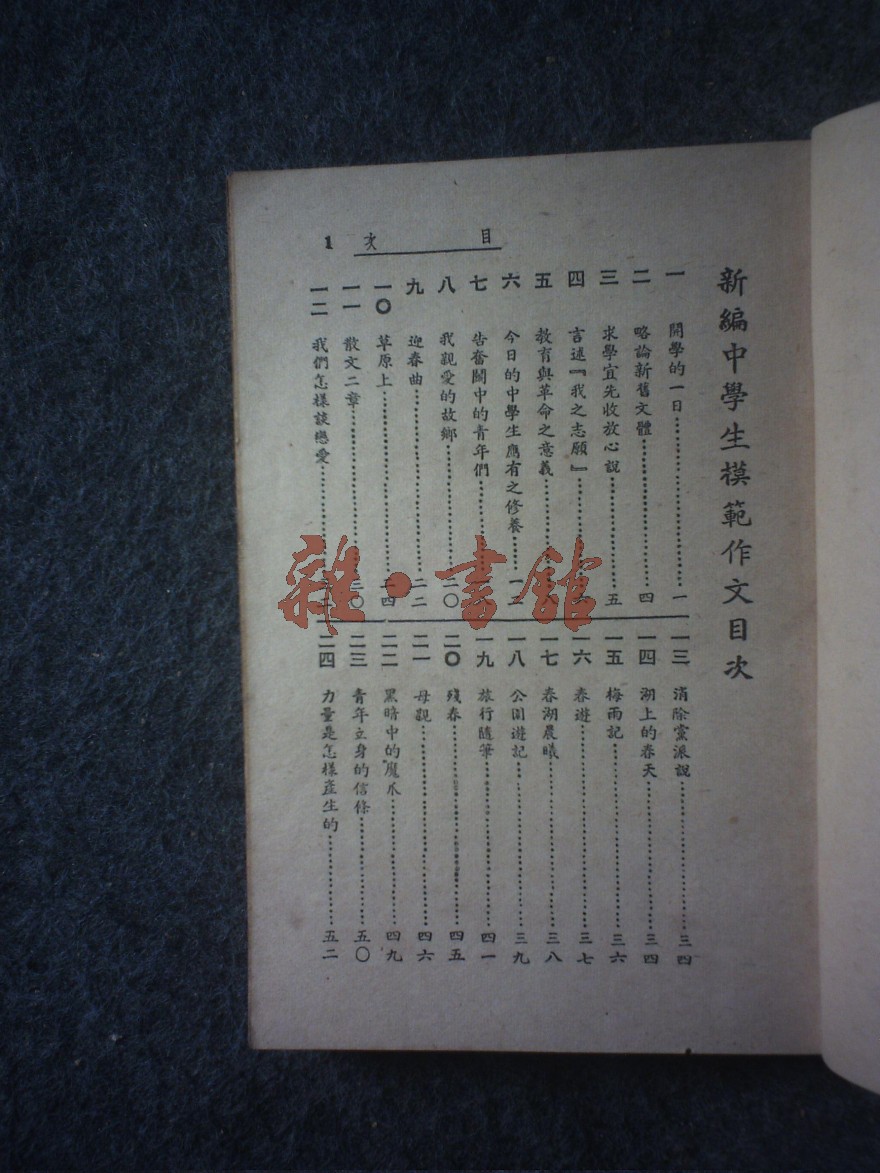 新編中學生模範作文目次
目次 1
一 開學的一日 一
二 略論新舊文體 四
三 求學宜先收放心說 五
四 言述『我之志願』
五 教育與革命之意義
六 今日的中學生應有之修養 一二
七 告奮鬭中的青年們
八 我親愛的故鄉 二〇
九 迎春曲 二二
一〇 草原上 二四
一一 散文二章 三〇
一二 我們怎樣談戀愛
一三 消除黨派說 三四
一四 湖上的春天 三四
一五 梅雨記 三六
一六 春遊 三七
一七 春湖晨曦 三八
一八 公園遊記 三九
一九 旅行隨筆 四一
二〇 殘春 四五
二一 母親 四六
二二 黑暗中的魔爪 四九
二三 青年立身的信條 五〇
二四 力量是怎樣產生的 五二
雜·書館